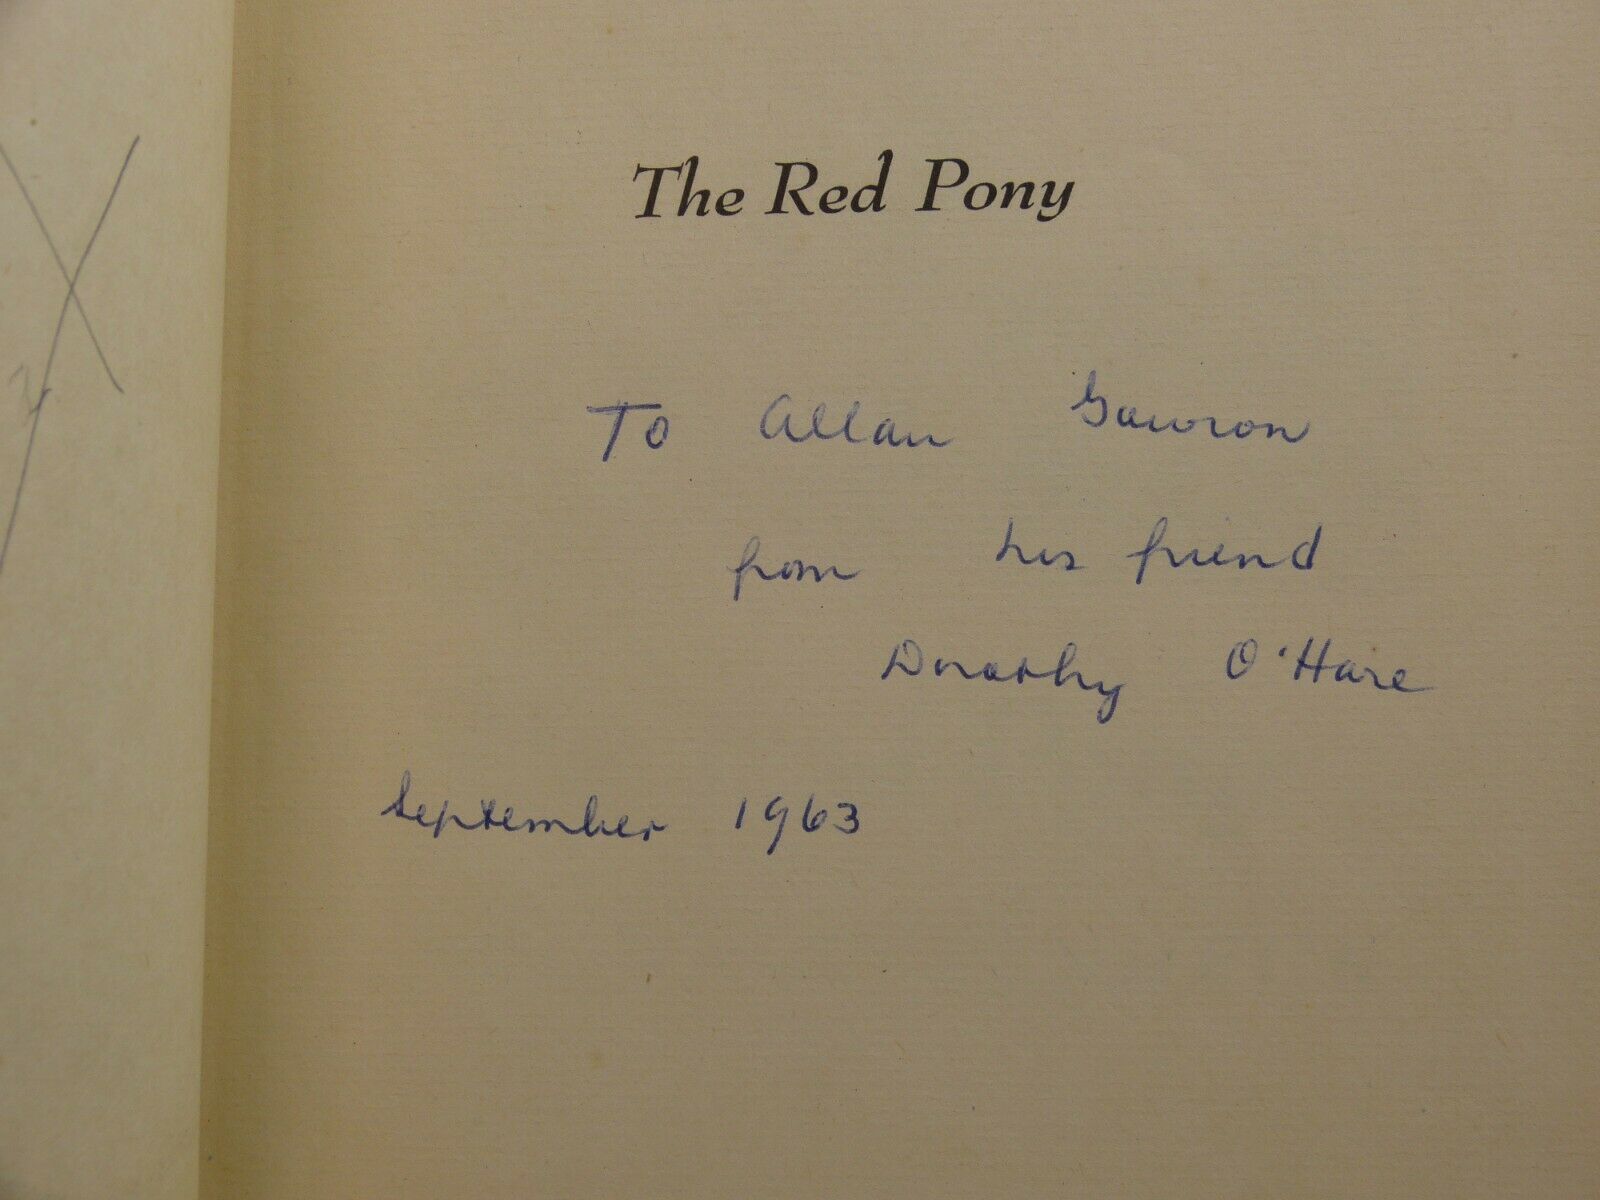 The Red Pony
To Allan Gawron
from his friend
Dorothy O'Hare
September 1963